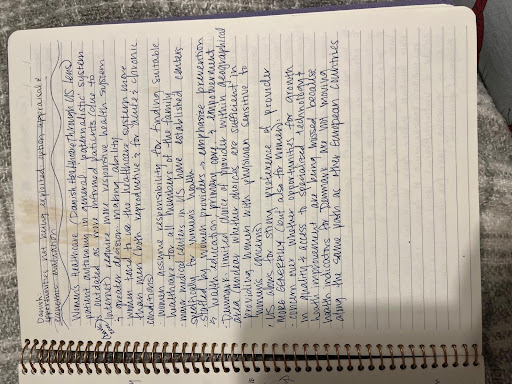 Danish
appearance not being explored option appraisal &
economic evaluation
Women's Healthcare (Danish Healthcare through US lens)
patient autonomy in general & paternalistic system
outdated as more informed patients (due to
internet) require more responsive health system
& greater decision making ability
women tend to use the healthcare system more
than men (both reproductive & for acute & chronic
conditions)
women assume responsibility for finding suitable
healthcare for all members of the family
many medical centers in US have established centers
specifically for women's health
started by women providers → emphasize prevention
& health education, primary care, & empowerment
Denmark: limited choice of provider within geographical
area (unclear whether choices are sufficient in
providing women with physician sensitive to
women's concerns)
US allows for strong preference of provider
more generally (but also for women)
concern over whether opportunities for growth
in quality & access to specialized technology &
health improvement are being missed because
health indicators for Denmark are not moving
along the same path as other European countries